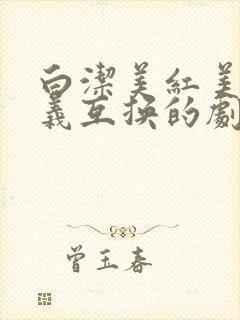 白潔美紅美
義互换的劇
曾玉春